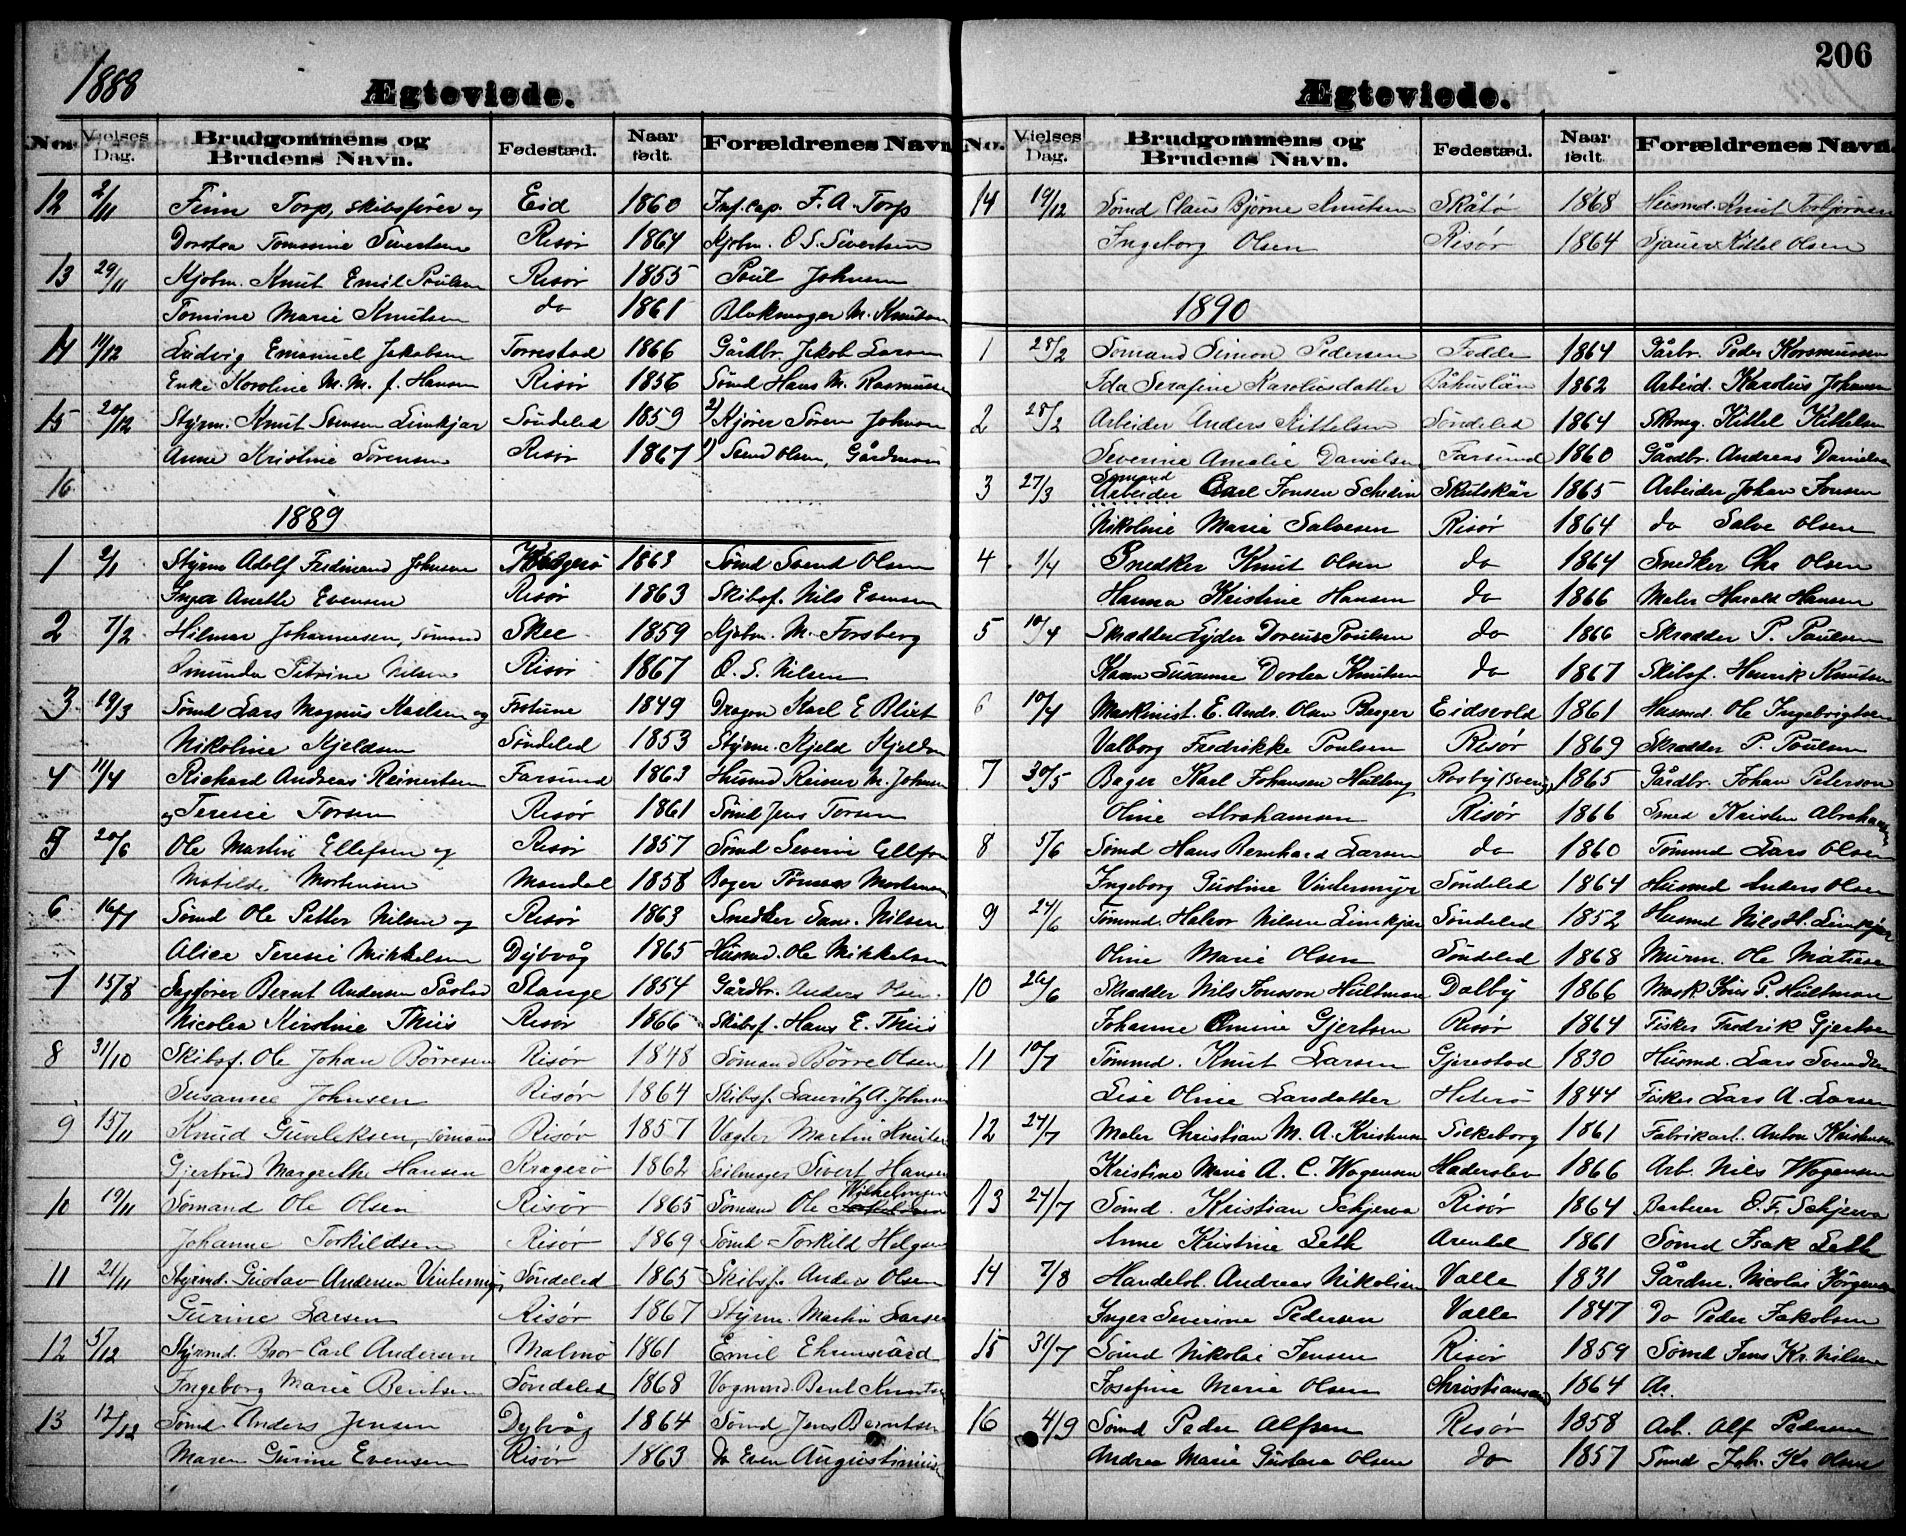 1888
Ægteviede.
No. Vielses Dag. Brudgommens og Brudens Navn. Fødested. Naar født. Forældrenes Navn
12 2/11 Finn Torp, skibsfører og Eid 1860 Inf. cap. F. A. Torp
Dorotea Tomssine Sivertsen Risør 1864 Kjøbm. O. S. Sivertsen
13 29/11 Kjøbm. Knut Emil Poulsen Risør 1855 Poul Johnsen
Tomine Marie Knutsen do 1861 Blokmager M. Knutsen
14 14/12 Ludvig Emanuel Jakobsen Torrestad 1866 Gårdbr. Jakob Larsen
Enke Karoline M. M. f. Hansen Risør 1856 Sømd Hans M. Rasmussen
15 20/12 Styrm. Knut Svensen Limkjær Søndeled 1859 2) Kjører Søren Johnsen
Anne Kristine Sørensen Risør 1867 1) Svend Olsen, Gårdman
16
1889
1 2/1 Styrm Adolf Ferdinand Johnsen Kragerø 1863 Sømd Svend Olsen
Inga Anette Evensen Risør 1863 Skibsf. Nils Evensen
2 7/2 Hilmar Johannesen, Sømand Skee 1859 Kjøbm. M. Forsberg
Petrine Nilsen Risør 1867 O. S. Nilsen
3 19/3 Sømd Lars Magnus Karlsen og 1849 Dragon Karl E Blixt
Nikoline Kjeldsen Søndeled 1853 Styrm. Kjeld Kjeldsen
4 11/4 Richard Andreas Reinertsen Farsund 1863 Husmd Reiner M. Johnsen
og Teresie Torsen Risør 1861 Sømd Jens Torsen
5 20/6 Ole Martin Ellefsen og Risør 1857 Sømd Severin Ellefsen
Matilde Mortensen Mandal 1858 Bager Tomas Mortensen
6 16/7 Sømd Ole Petter Nilsen og Risør 1863 Snedker Sam. Nilsen
Alice Teresie Mikkelsen Dybvåg 1865 Husmd. Ole Mikkelsen
7 15/8 Bernt Andersen Såstad Stange 1854 Gårdbr. Anders Olsen
Nicolea Kirstine Thiis Risør 1866 Skibsf. Hans E. Thiis
8 31/10 Skibsf. Ole Johan Børresen Risør 1848 Sømand Børre Olsen
Susanne Johnsen Risør 1864 Skibsf. Lauritz A. Johnsen
9 15/11 Knud Gunleksen, Sømand Risør 1857 Vagter Martin Knutsen
Gjertrud Margrethe Hansen Kragerø 1862 Seilmager Sivert Hansen
10 19/11 Sømand Ole Olsen Risør 1865 Sømand Ole Wilhelmsen
Johanne Torkildsen Risør 1869 Sømd Torkild Helgesen
11 21/11 Styrmd. Gustav Andersen Vintermyr, Søndeled 1865 Skibsf. Anders Olsen
Gurine Larsen Risør 1867 Styrm. Martin Larsen
12 5/12 Styrmd. Bror Carl Andersen Malmø 1861 Emil Ehrensvärd
Ingeborg Marie Bentsen Søndeled 1868 Vognmd. Bent Knutsen
13 12/12 Sømd. Anders Jensen Dybvåg 1864 Sømd Jens Berntsen
Maren Gurine Evensen Risør 1863 do Even Augustinusen
206
Ægteviede.
No. Vielses Dag. Brudgommens og Brudens Navn. Fødested. Naar født. Forældrenes Navn.
14 19/12 Sømd Claus Bjørne Knutsen Skåtø 1868 Husmd. Knut Torbjørnsen
Ingeborg Olsen Risør 1864 Sjauer Kittel Olsen
1890
1 28/2 Sømand Simon Pedersen Fedde 1864 Gårbr. Peder Korsmussen
Ida Serafine Karoliusdatter Båhuslän 1862 Arbeid. Karolius Johansen
2 28/2 Arbeider Anders Kittelsen Søndeled 1864 Skomg. Kittel Kittelsen
Severine Amalie Danielsen Farsund 1860 Gårdbr. Andreas Danielsen
3 27/3 Sømand Arbeider Carl Jonsen Schelin Skutskär 1865 Arbeider Johan Jonsen
Nikoline Marie Salvesen Risør 1864 do Salve Olsen
4 1/4 Snedker Knut Olsen do 1864 Snedker Chr Olsen
Hanna Kristine Hansen do 1866 Maler Harald Hansen
5 10/4 Skrædder Lyder Doreus Poulsen do 1866 Skrædder P. Poulsen
Karen Susanne Dortea Knutsen do 1867 Skibsf. Henrik Knutsen
6 10/4 Maskinist. E. Andr. Olsen Berger Eidsvold 1861 Husmd. Ole Ingebrigtsen
Valborg Fredrikke Poulsen Risør 1869 Skrædder P. Poulsen
7 30/5 Bager Karl Johansen Hultberg Rosby (Sverig) 1865 Gårdbr. Johan Peterson
Oline Abrahamsen Risør 1866 Smed Kristen Abrahamsen
8 5/6 Sømd Hans Bernhard Larsen do 1860 Tømmd Lars Olsen
Ingeborg Gustine Vintermyr Søndeled 1864 Husmd Anders Olsen
9 24/6 Tømmd. Halvor Nilsen Limkjær Søndeled 1852 Husmd Nils H. Limkjær
Oline Marie Olsen Søndeled 1868 Murm. Ole Matiesen
10 26/6 Skrædder Nils Jonsson Hultman Dalby 1866 Mask. Jøns P. Hultman
Johanne Emine Gjertsen Risør 1864 Fisker Fredrik Gjertsen
11 10/7 Tømmd. Knut Larsen Gjerestad 1830 Husmd. Lars Svendsen
Lise Oline Larsdatter Hiterø 1844 Fisker Lars A. Larsen
12 24/7 Maler Christian M. A. Kristensen Silkeborg 1861 Fabrikarb. Anton Kristensen
Kristine Marie A. C. Wogensen Haderslev 1866 Arb. Nils Wogensen
13 24/7 Sømd. Kristian Schjerva Risør 1864 Barberer O. F. Schjerva
Anne Kristine Leth Arendal 1861 Sømd Isak Leth
14 7/8 Handelsb. Andreas Nikolaisen Valle 1831 Gårdm. Nicolai Jørgensen
Inger Severine Pedersen Valle 1847 Do Peder Jakobsen
15 31/7 Sømd Nikolai Jensen Risør 1859 Sømd Jens Kr. Nilsen
Josefine Marie Olsen Christiansand 1864
16 4/9 Sømd Peder Alfsen Risør 1858 Arb. Alf Pedersen
Andrea Marie Gustava Olsen do 1857 Sømd Joh. Kr Olsen